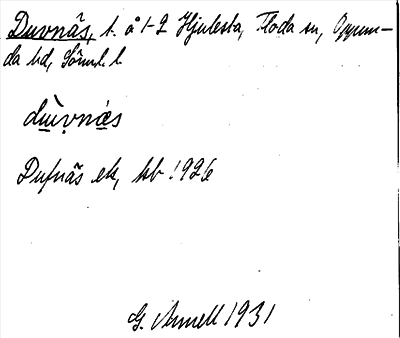 Duvnäs, t. å 1-2 Hjulesta, Floda sn, Oppun-
da hd, Sörml. l
dùvnäs
Dufnäs ek, kb 1926
G. Armell 1931